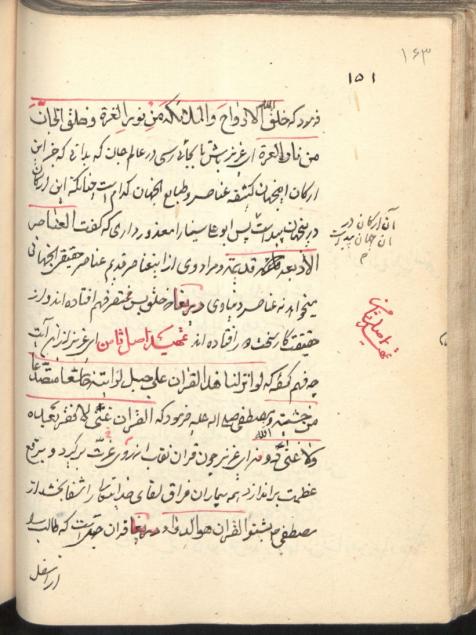 ۱۶۳
۱۵۱
فرمود که خلق الله الارواح والملائکة من نور العزة و خلق الجان
من نار العزة ای عزیز باش تا بجائی رسی در عالم جان که بدانی که جز این
ارکان اینجهان کشفه عناصر و طبایع آنجهان کدام است چنانکه این ارکان
در اینجهان پیداست پس ابو علی سینا را معذور داری که گفت العناصر
الاربعة قدیمة و مراد وی از این عناصر قدیم عناصر حقیقی آنجهانی
میخواند نه عناصر دنیاوی دریغا خلق بس مختصر فهم افتاده اند و از
حقیقت کار سخت دور افتاده اند تمهید اصل ثامن ای عزیز از این آیت
چه فهم کرده که لو انزلنا هذا القرآن علی جبل لرأیته خاشعا متصدعا
من خشیة الله و مصطفی صلی الله علیه فرمود که القرآن غنی لا فقر بعده
ولا غنی دونه ای عزیز چون قرآن نقاب از روی عزت برگیرد و برقع
عظمت براندازد همه بیماران فراق لقای خدایتعالی را شفا بخشد از
مصطفی بشنو القرآن هو الدواء دریغا قرآن حبل است که طالب
آن ارکان در
آن جهان پیداست
تمهید اصل ثامن
از اسفل